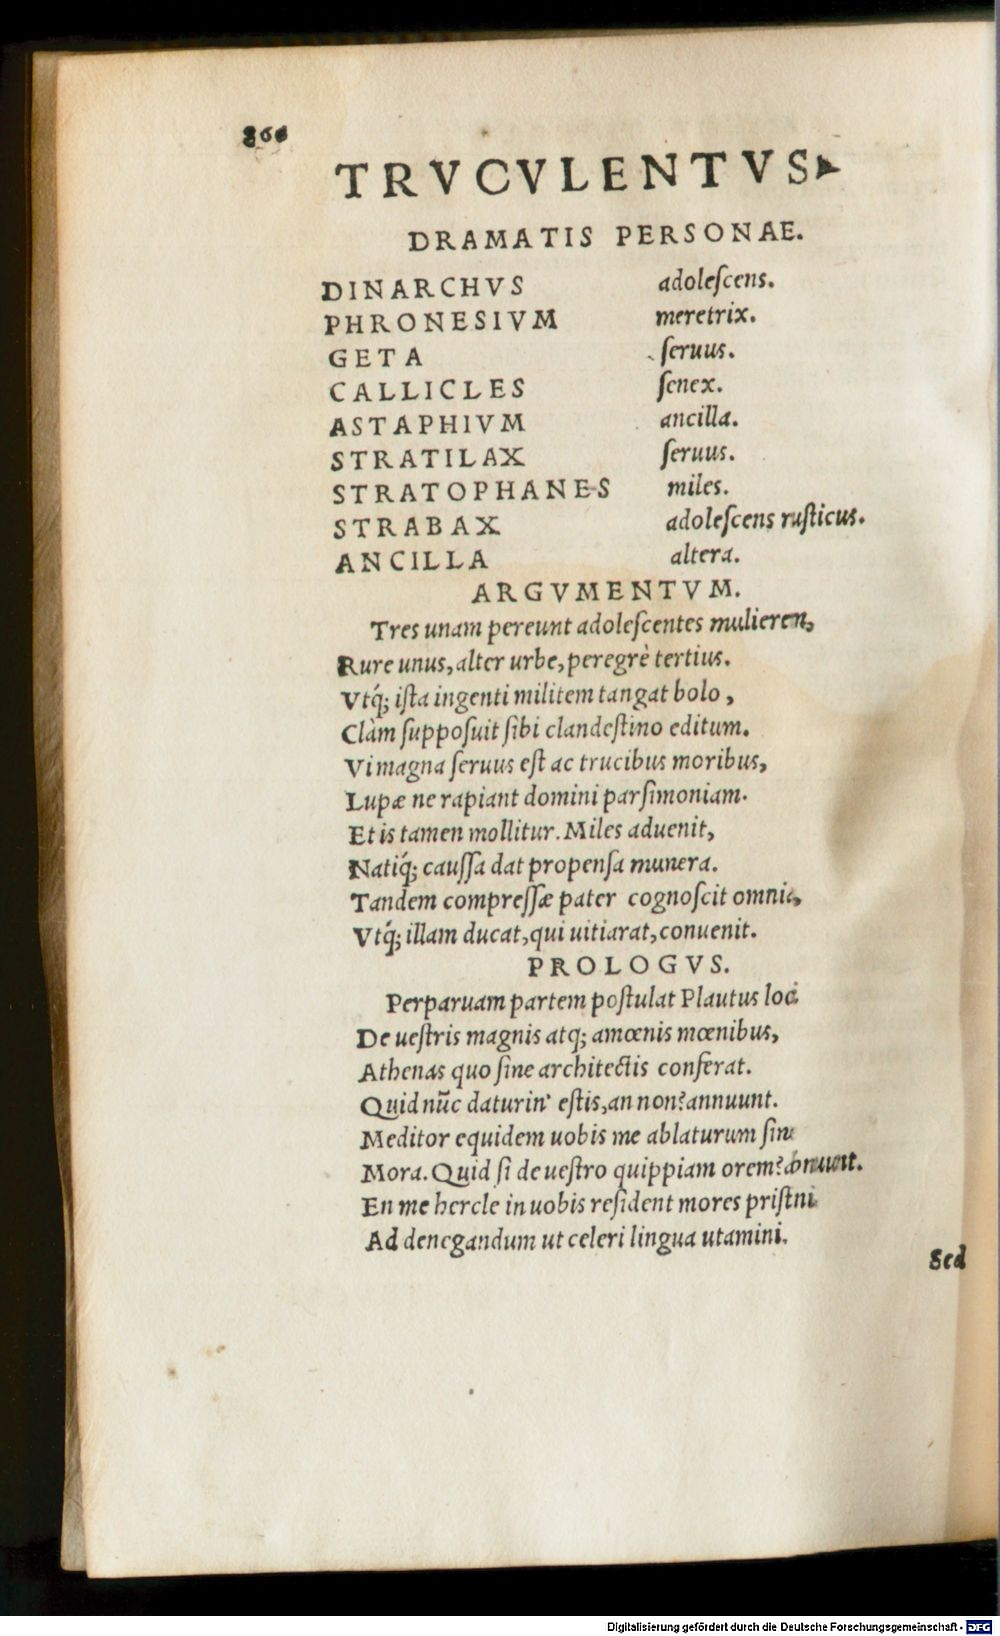 TRVCVLENTVS
DRAMATIS PERSONAE.
DINARCHVS adoleſcens.
PHRONESIVM meretrix.
GETA ſeruus.
CALLICLES ſenex.
ASTAPHIVM ancilla.
STRATILAX ſeruus.
STRATOPHANES miles.
STRABAX adoleſcens ruſticus.
ANCILLA altera.
ARGVMENTVM.
Tres unam pereunt adoleſcentes mulierem,
Rure unus, alter urbe, peregrè tertius.
Vtq́; iſta ingenti militem tangat bolo,
Clàm ſuppoſuit ſibi clandeſtino editum.
Vi magna ſeruus eſt ac trucibus moribus,
Lupæ ne rapiant domini parſimoniam.
Et is tamen mollitur. Miles aduenit,
Natiq́; cauſſa dat propenſa munera.
Tandem compreſſæ pater cognoſcit omnia,
Vtq́; illam ducat, qui uitiarat, conuenit.
PROLOGVS.
Perparuam partem poſtulat Plautus loci
De ueſtris magnis atq; amœnis mœnibus,
Athenas quo ſine architectis conferat.
Quid nũc daturin' eſtis, an non? annuunt.
Meditor equidem uobis me ablaturum ſine
Mora. Quid ſi de ueſtro quippiam orem? abnuunt.
En me hercle in uobis reſident mores priſtini
Ad denegandum ut celeri lingua utamini.
Sed
Digitalisierung gefördert durch die Deutsche Forschungsgemeinschaft - DFG